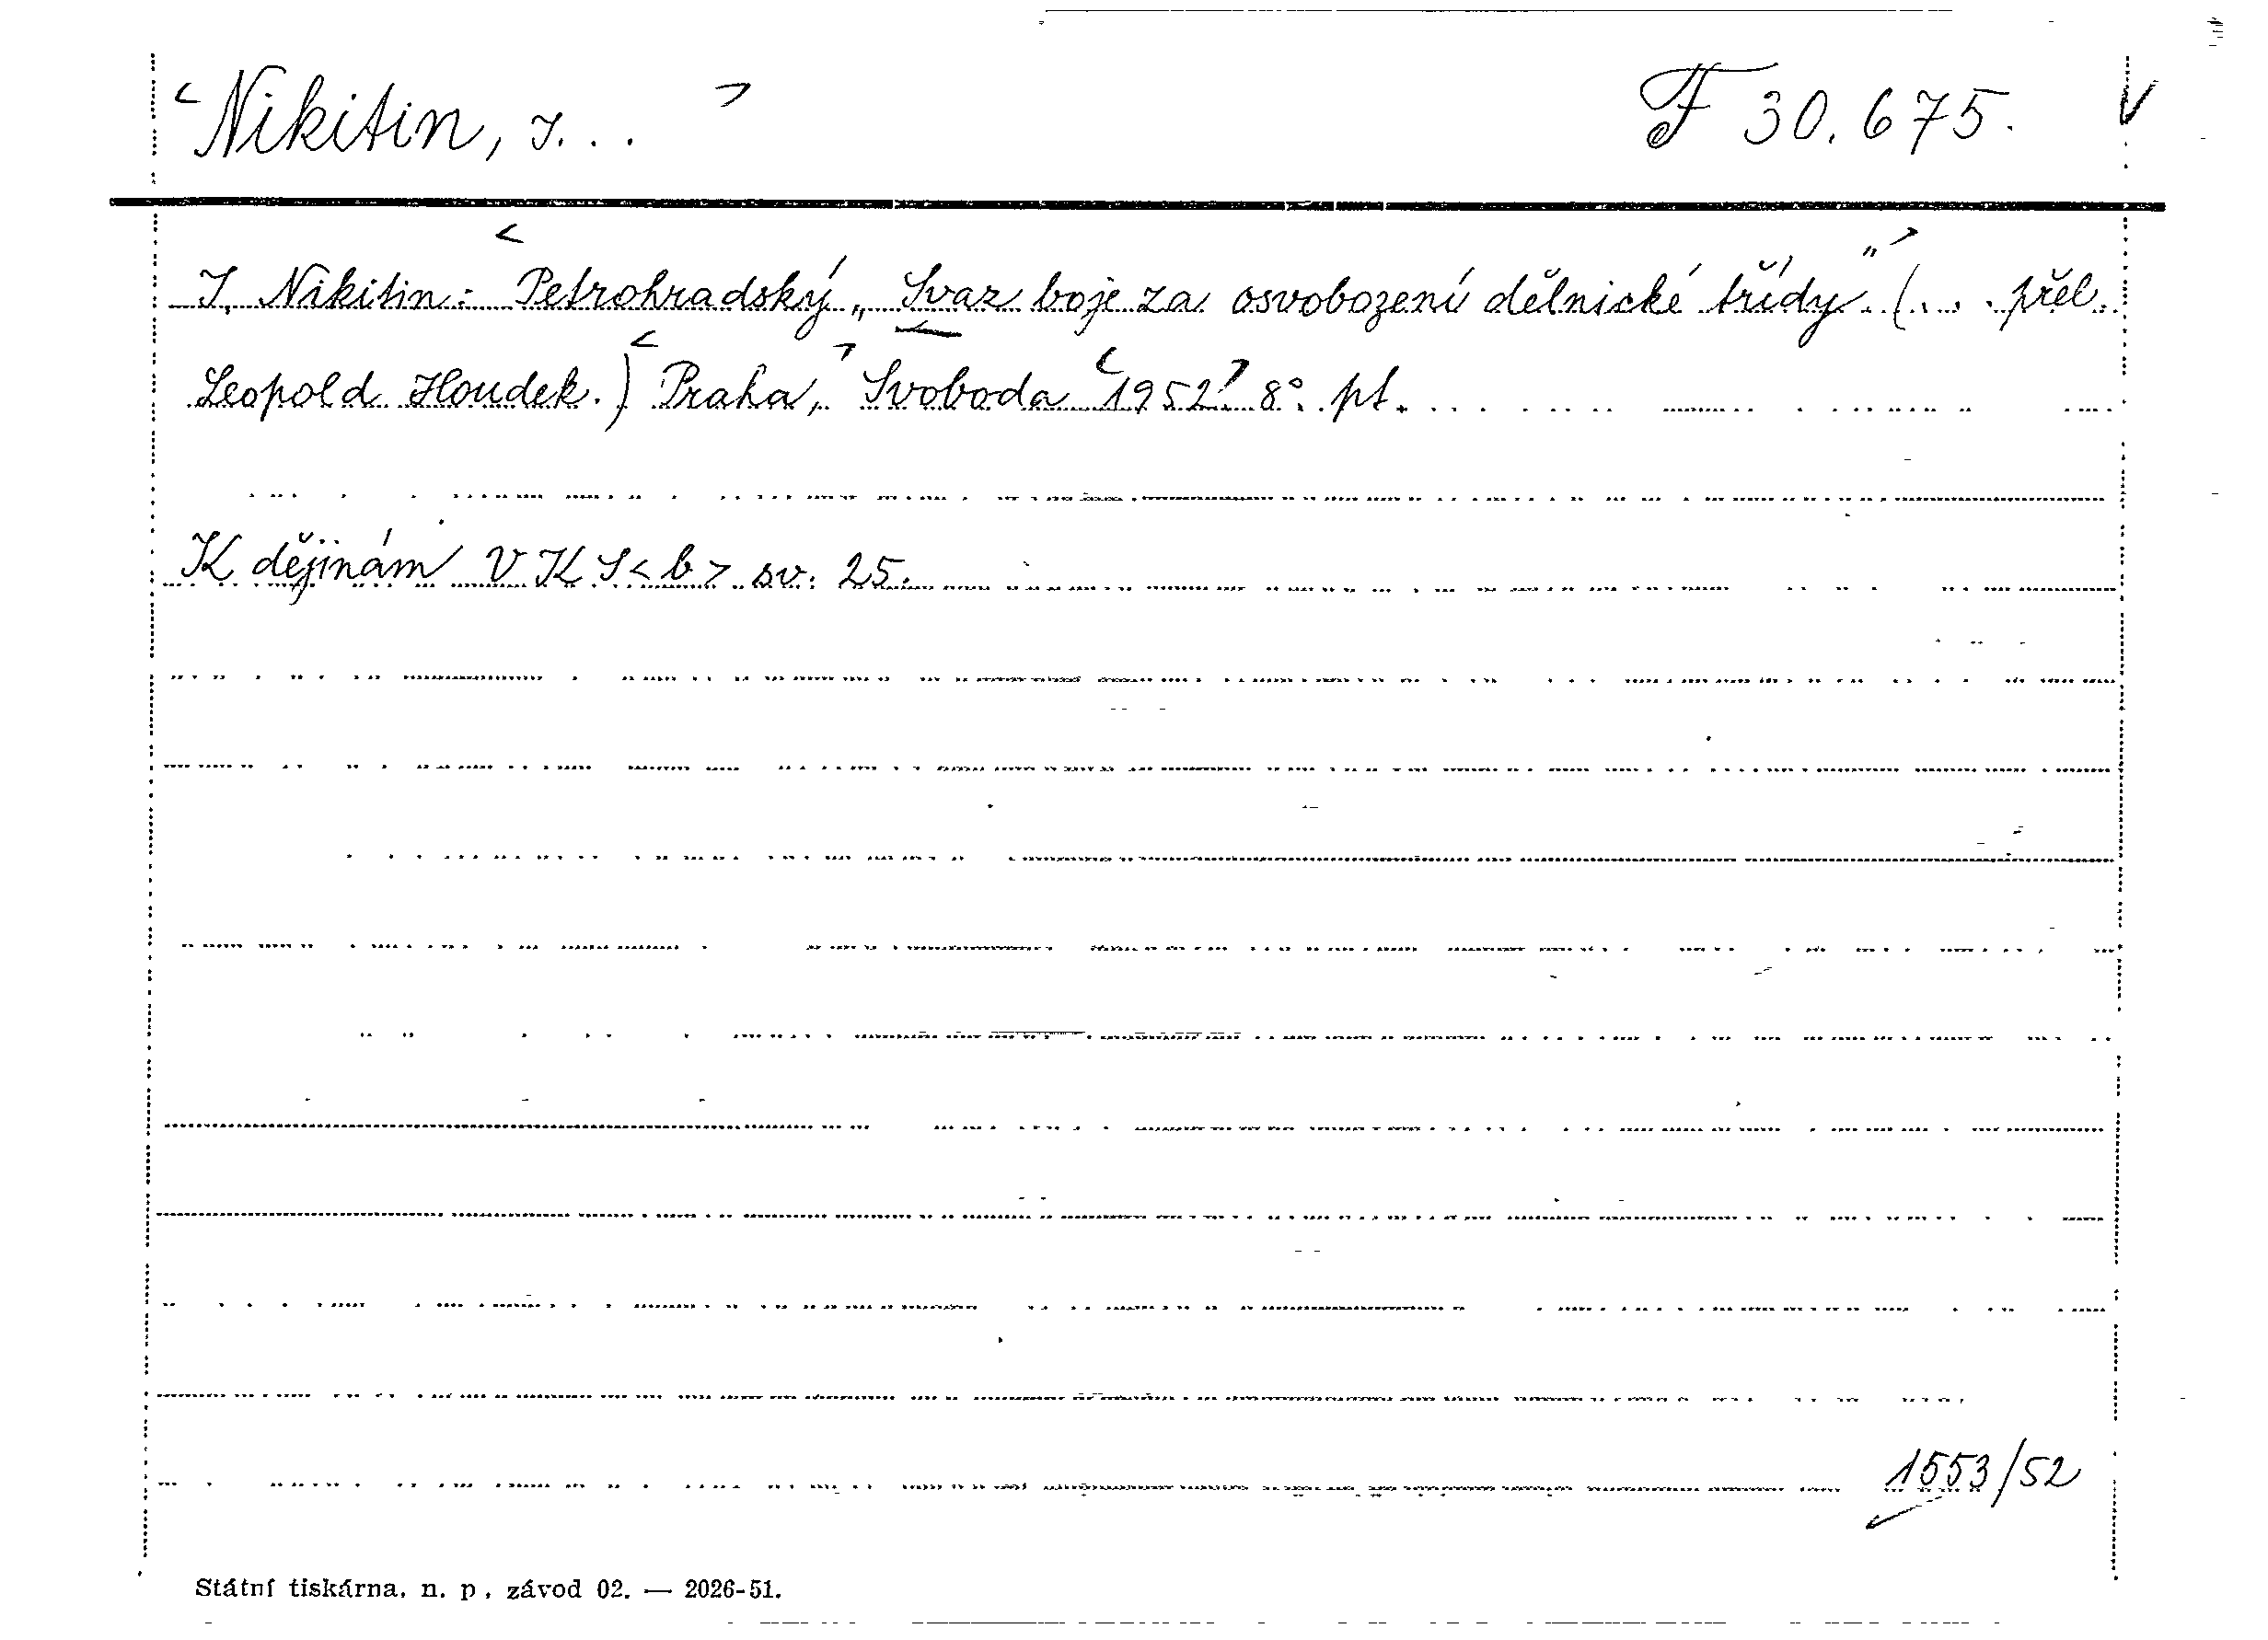 <Nikitin, I. . .> F 30.675. V
I. Nikitin: <Petrohradský „Svaz boje za osvobození dělnické třídy"> (... přel.
Leopold Houdek.) <Praha,> Svoboda <1952> 8° pt.
K dějinám VKS<b> sv. 25.
1553/52
Státní tiskárna, n. p., závod 02. — 2026-51.